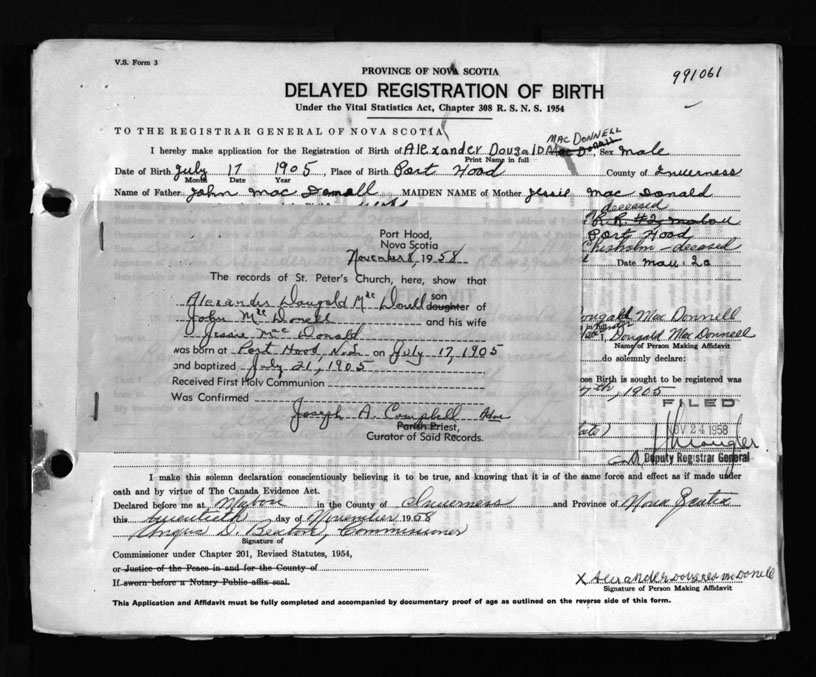 V.S. Form 3
991061
PROVINCE OF NOVA SCOTIA
DELAYED REGISTRATION OF BIRTH
Under the Vital Statistics Act, Chapter 308 R. S. N. S. 1954
TO THE REGISTRAR GENERAL OF NOVA SCOTIA
MAC DONNELL
I hereby make application for the Registration of Birth of Alexander Dougald Sex Male
Print Name in full
Date of Birth July 17 1905, Place of Birth Port Hood County of Inverness
Month Date Year
Name of Father John Mac Donnell MAIDEN NAME of Mother Jessie Mac Donald
deceased
R.R. #2 Mabou
Port Hood
Chisholm - deceased
Date
Port Hood,
Nova Scotia
November 8, 1958
The records of St. Peter's Church, here, show that
Alexander Dougald Mac Donell son
daughter of
John Mac Donell and his wife
Jessie Mac Donald
was born at Port Hood, on July 17, 1905
and baptized July 21, 1905
Received First Holy Communion
Was Confirmed
Joseph A. Campbell
Parish Priest,
Curator of Said Records.
Dougald Mac Donnell
Dougald Mac Donnell
Name of Person Making Affidavit
do solemnly declare:
ose Birth is sought to be registered was
th, 1905
FILED
NOV 24 1958
Deputy Registrar General
I make this solemn declaration conscientiously believing it to be true, and knowing that it is of the same force and effect as if made under
oath and by virtue of The Canada Evidence Act.
Declared before me at Mabou in the County of Inverness and Province of Nova Scotia
this twentieth day of November 1958
Angus D. Beaton, Commissioner
Signature of
Commissioner under Chapter 201, Revised Statutes, 1954,
or Justice of the Peace in and for the County of
If sworn before a Notary Public affix seal.
X Alexander Dougald McDonell
Signature of Person Making Affidavit
This Application and Affidavit must be fully completed and accompanied by documentary proof of age as outlined on the reverse side of this form.